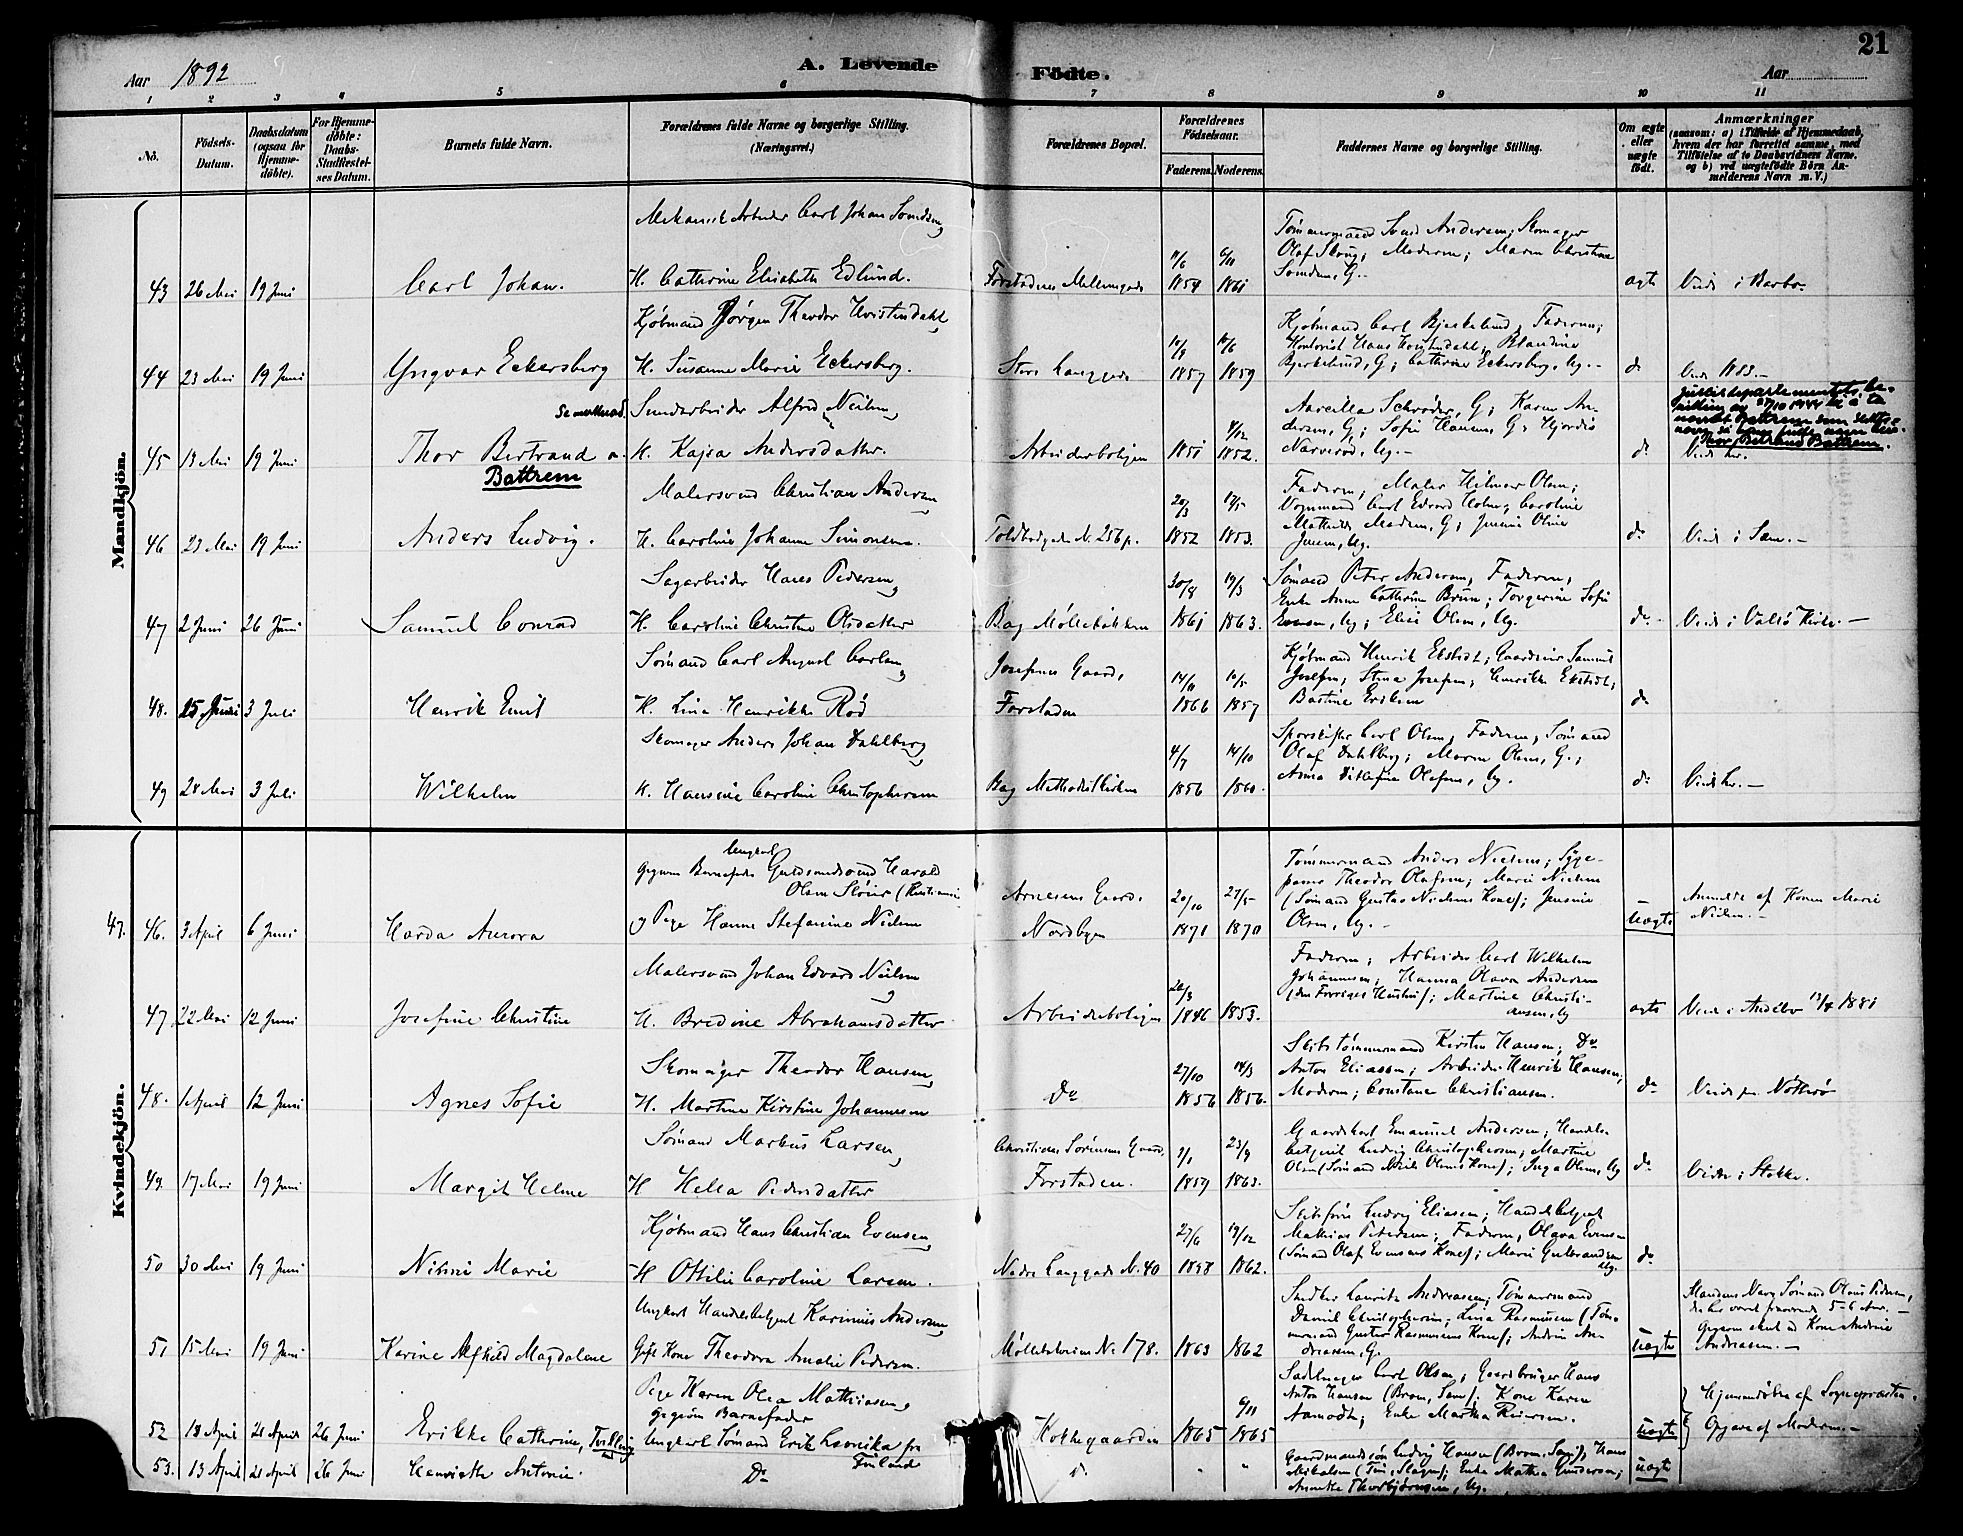 21
Aar 1892
A. Levende Födte.
Aar
1 2 3 4 5 6 7 8 9 10 11
No.
Födsels-Datum.
Daabsdatum (ogsaa for Hjemme-döbte).
For Hjemme-döbte: Daabs-Stadfæstel-ses Datum.
Barnets fulde Navn.
Forældrenes fulde Navne og borgerlige Stilling. (Næringsvei.)
Forældrenes Bopæl.
Forældrenes Födselsaar.
Faderens. Moderens.
Faddernes Navne og borgerlige Stilling.
Om ægte eller uægte födt.
Anmærkninger
(saasom: a) i Tilfælde af Hjemmedaab, hvem der har forrettet samme, med Tilföielse af to Daabsvidners Navne, og b) ved uægtefödte Börn Anmelderens Navn m. V.)
Mandkjön.
43 26 Mai 19 Juni
Carl Johan.
Mekanisk Arbeider Carl Johan
H. Cathrine Elisabeth Edlund.
Forstadens Mellemgade
11/6 1854 6/11 1861
Tømmermand Svend Andersen; Skomager
Olaf Skoug; Moderen; Maren Christine
ægte
Viede i Barbo.
44 23 Mai 19 Juni
Yngvar Eckersberg
Kjøbmand Jørgen Theodor Kristendahl,
H. Susanne Marie Eckersberg.
Store Langgade
1857 1859
Kjøbmand Carl Bjerkelund; Faderen;
Bjerkelund, G; Cathrine Eckersberg, Ug.
do
Viede 1883.
45 19 Juni
Thor Bertrand
Battrem
Alfred Nielsen,
H. Kajsa Andersdatter.
Arbeiderboligen
1851 4/12 1852.
Schrøder, G; Karen An-
dersen, G; Sofie Hansen, G; Hjørdis
Narverød, Ug.
do
Thor Bertrand Battrem.
Viede her.
46 23 Mai 19 Juni
Anders Ludvig.
Malersvend Christian Andersen,
H. Caroline Johanne Simonsen.
Toldbodgade N. 256 p.
20/3 1852 1853.
Faderen; Maler Hilmar Olsen;
Vognmand Carl Edvard Holm; Caroline
Mathilde Madsen, G; Jensine Oline
Jensen, Ug.
do
Viede i Sem.
47 2 Juni 26 Juni
Samuel Conrad
Sagarbeider Hans Pedersen,
H. Caroline Christine Olsdatter
Bag Møllebakken
30/8 1861 19/3 1863.
Sømand Peter Andersen, Faderen;
Enke Anne Cathrine Bruun; Torgerine Sofie
Evensen, Ug; Elise Olsen, Ug.
do
Viede i Valø Kirke.
48. 15 Juni 3 Juli
Henrik Emil
Sømand Carl August Carlsen,
H. Lina Henrikke Rød
Josefsens Gaard,
Forstaden
14/11 1866 10/5 1857
Kjøbmand Henrik Ekstedt; Samuel
Josefsen; Stina Josefsen; Henrikke Ekstedt;
Bastine Eriksen
do
49 28 Mai 3 Juli
Wilhelm
Skomager Anders Johan Dahlberg,
H. Hansine Caroline Christophersen
Bag Methodistkirken
4/7 1856 14/10 1860.
Carl Olsen, Faderen, Sømand
Olaf Dahlberg; Maren Olsen, G.;
Anna Olafsen, Ug.
do
Viede her.
Kvindekjön.
47. 46. 3 April 6 Juni
Harda Aurora
Ungkarl
Guldsmedsvend Harald
Olsen (Kristiania
og Pige Hanne Stefanine Nielsen
Arnesens Gaard.
Nordbyen
20/10 1871 27/5 1870
Tømmermand Anders Nielsen; Syge-
passer Theodor Olafsen; Marie Nielsen
(Sømand Gustav Nielsens Kone); Jensine
Olsen, Ug.
Uægte
Anmeldt af Konen Marie
Nielsen.
47 22 Mai 12 Juni
Josefine Christine
Malersvend Johan Edvard Nielsen
H. Bredine Abrahamsdatter
Arbeiderboligen
1846 1853.
Faderen; Arbeider Carl Wilhelm
Johannesen; Hanna Olava Andersen
(den Forriges Hustru); Martine Christi-
ansen, Ug
ægte
Viede i Andebo 1881
48. 1 April 12 Juni
Agnes Sofie
Skomager Theodor Hansen,
H. Martine Kirstine Johannesen
Do
27/10 1856 14/3 1856.
Skibstømmermand Kirsten Hansen; Do
Anton Eliassen; Arbeider Henrik Hansen;
Moderen; Constance Christiansen.
do
Viede paa Nøtterø
49. 17 Mai 19 Juni
Margit Helene
Sømand Markus Larsen,
H Hella Pedersdatter
Christian Sørensens Gaard,
Forstaden.
1859 23/9 1863.
Gaardskarl Emanuel Andersen; Handels-
betjent Ludvig Christophersen; Martine
Olsen (Sømand Olsens Kone); Inga Olsen, Ug
do
Viede i Stokke.
50 30 Mai 19 Juni
Ninni Marie
Kjøbmand Hans Christian Evensen,
H Ottilie Caroline Larsen.
Nedre Langgade N. 40
27/6 1858 19/12 1862.
Skibsfører Ludvig Eliasen; Handelsbetjent
Mathias Petersen; Faderen, Olava Evensen
(Sømand Olaf Evensens Kone); Marie Gulbrandsen
Ug.
do
51 15 Mai 19 Juni
Karine Alfhild Magdalene
Ungkarl Handelsbetjent Karinius Andersen,
Gift Kone Theodora Amalie Pedersen.
Møllebakken No. 178.
1863 1862
Snedker Lauritz Andreasen; Tømmermand
Daniel Christophersen; Lina Rasmussen (Tøm-
mermand Gustav Rasmussens Kone); Andrine An-
dreasen, G.
Uægte
Mandens Navn Sømand Olaus Pedersen,
5-6 Aar.
Kone Andrine
Andreasen.
52 18 April 21 April 26 Juni
Erikke Cathrine, Tvilling
Pige Karen Olea Mathiasen,
Barnefader
Ungkarl Sømand Erik fra
Finland
Kokkegaarden
1865 6/11 1865
Sadelmager Carl Olsen; Gaardbruger Hans
Anton Hansen (Brom, Sem); Kone Karen
Aamodt; Enke Martha Reiersen.
uægte
Hjemmedøbte af Sognepræsten.
Opgave af Moderen.
53. 13 April 21 April 26 Juni
Henriette Antonie.
Do
Gaardmandssøn Ludvig Hansen (Brom, Sem); Hans
Mikalsen (Slagen); Enke Mathea Gundersen;
Annette Thorbjørnsen, Ug.
uægte